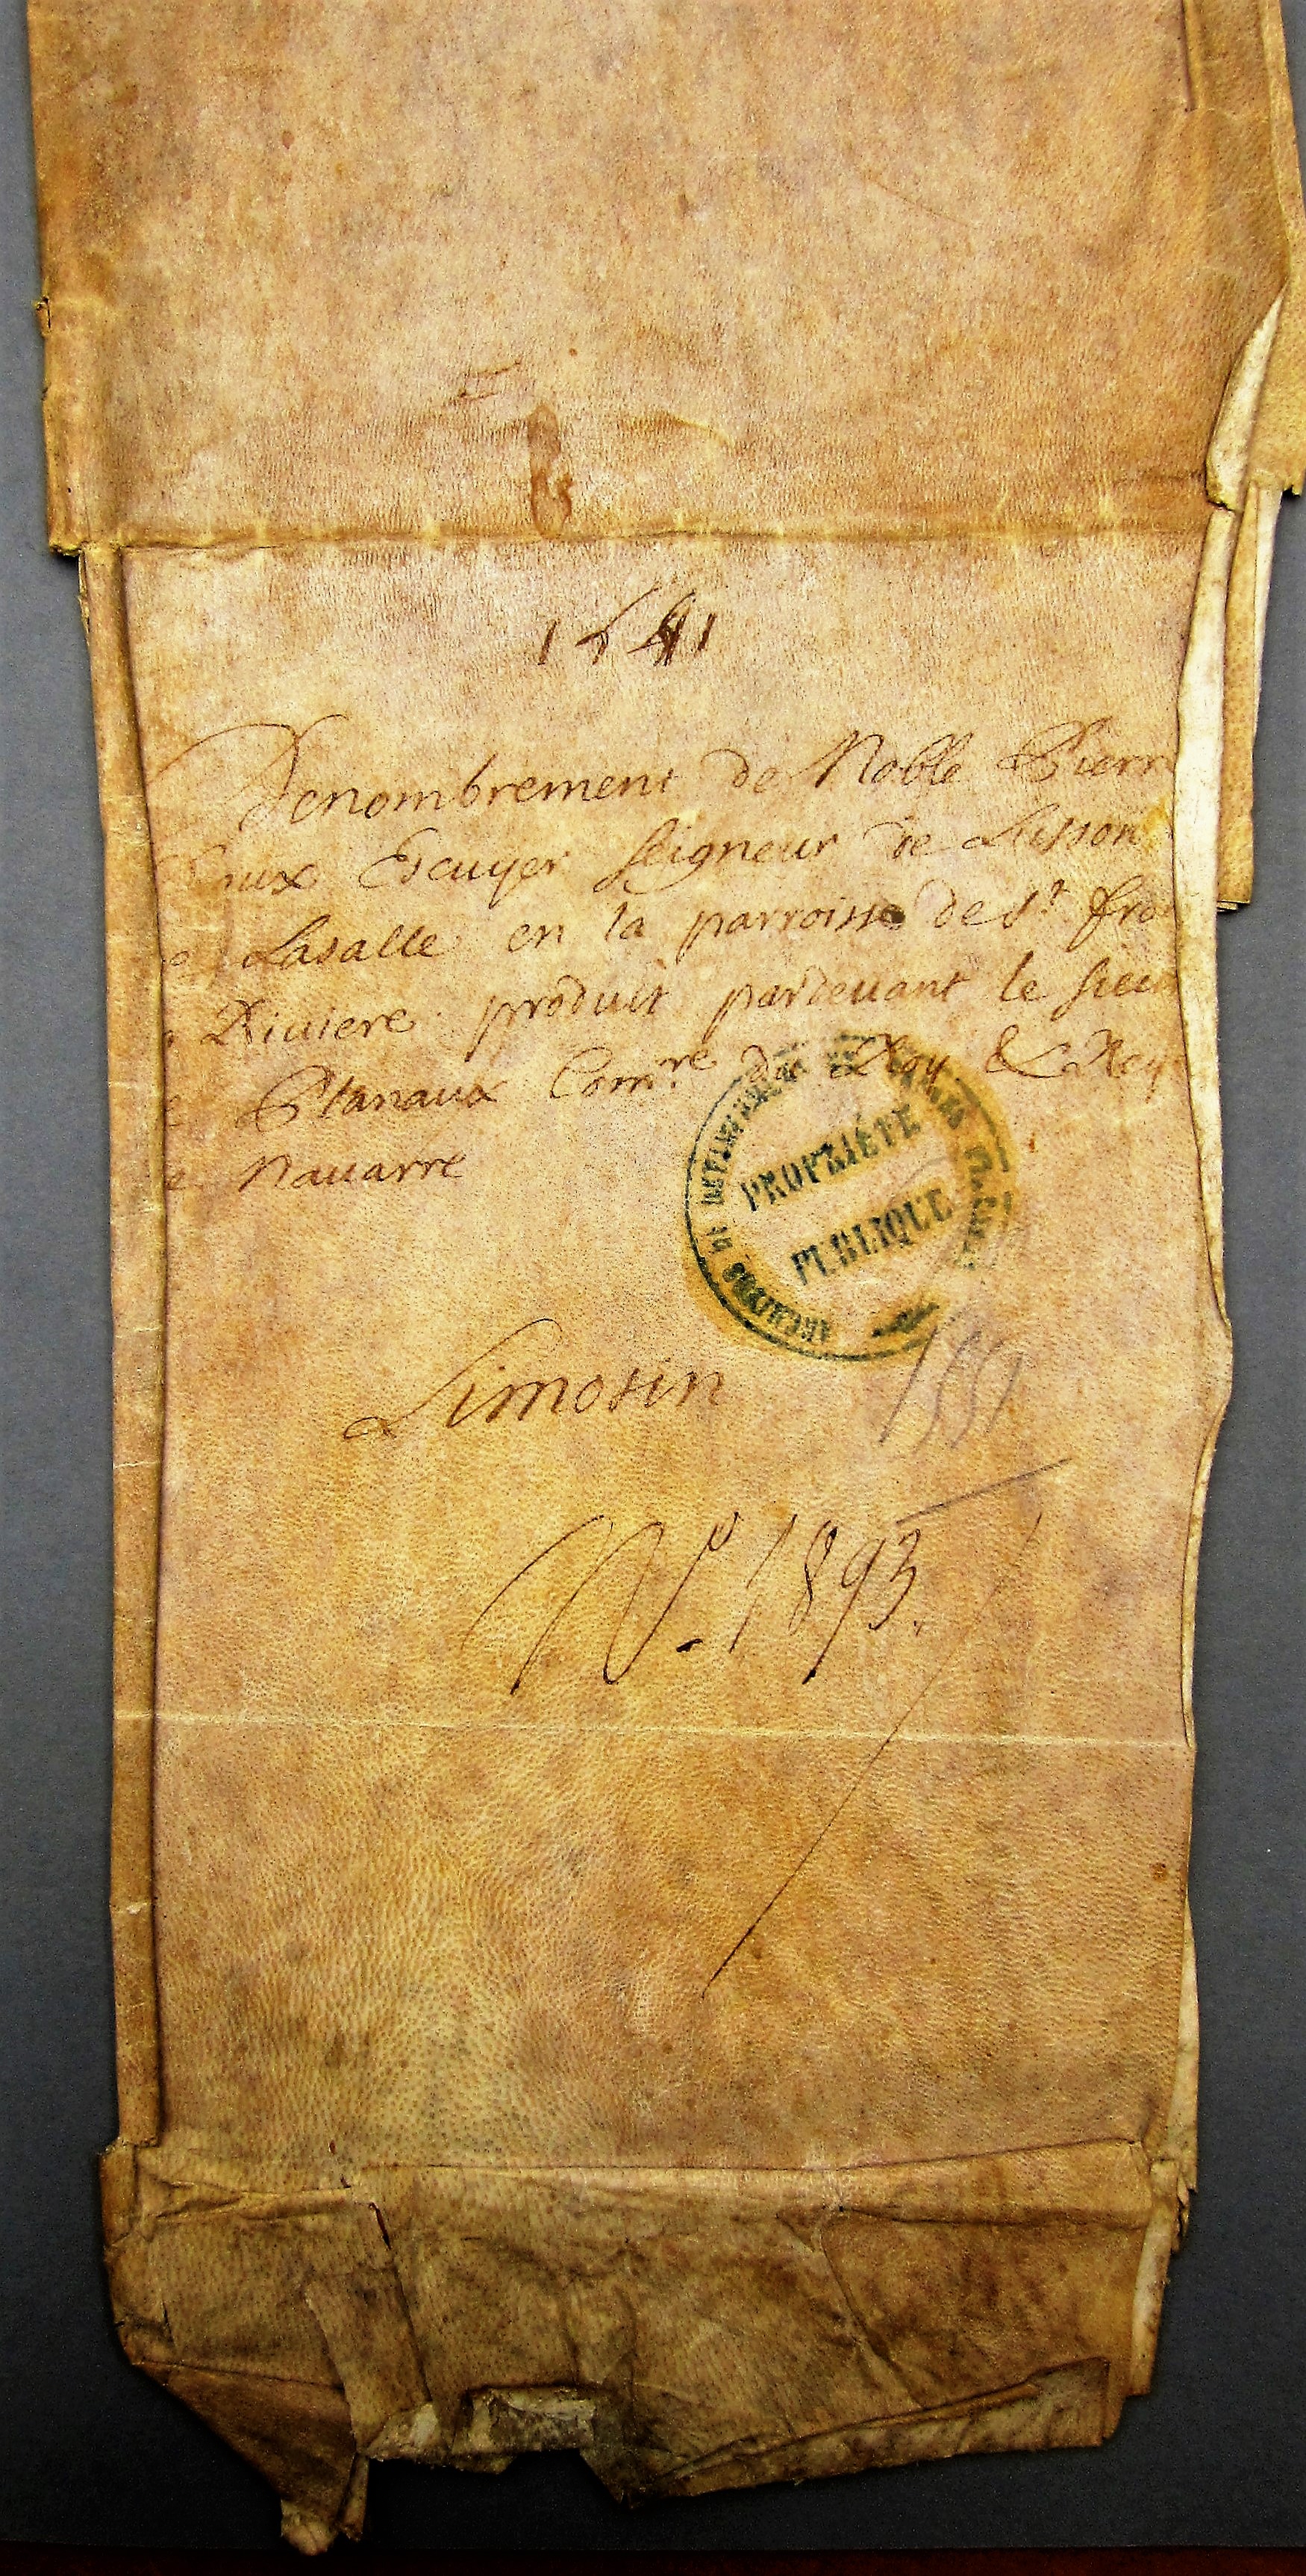 1541
Denombrement de Noble Pierr
aux Escuyer seigneur de Lusson
e Lasalle en la parroisse de St. fron
Riuiere produit pardeuant le sieur
e Planaux Comre. du Roy & Roy
e Nauarre
ARCHIVES DE
PROPRIÉTÉ
PUBLIQUE
Limosin
1551
No. 1893.